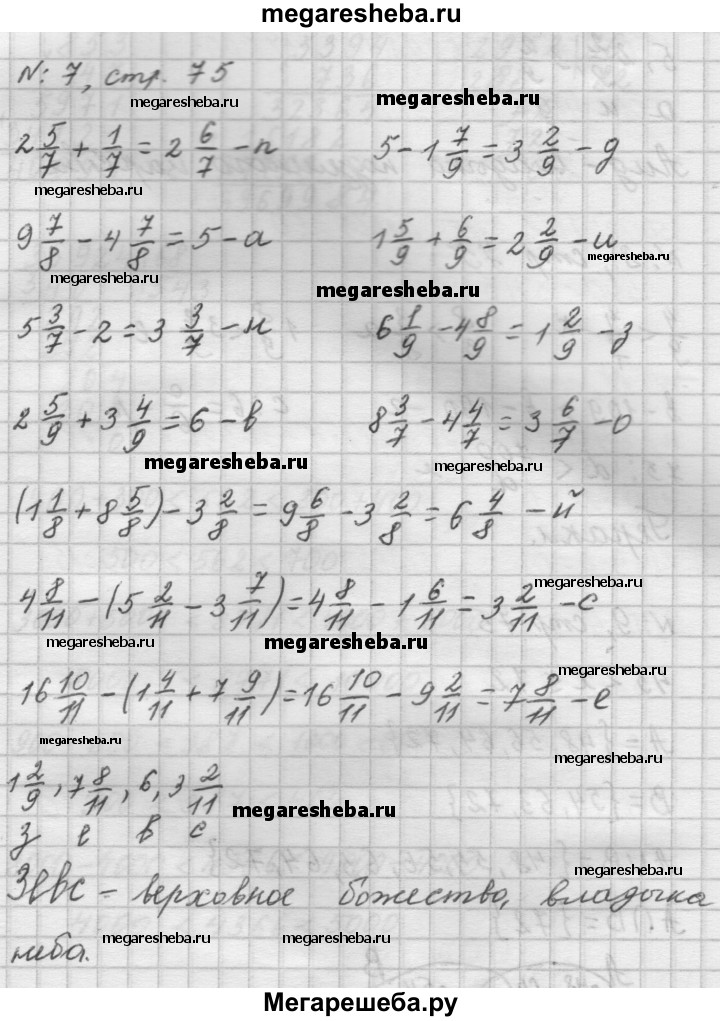 megaresheba.ru
№ 7, стр. 75
megaresheba.ru megaresheba.ru
2 5/7 + 1/7 = 2 6/7 - п 5 - 1 7/9 = 3 2/9 - д
megaresheba.ru megaresheba.ru
9 7/8 - 4 7/8 = 5 - а 1 5/9 + 6/9 = 2 2/9 - и
megaresheba.ru megaresheba.ru megaresheba.ru
5 3/7 - 2 = 3 3/7 - н 6 1/9 - 4 8/9 = 1 2/9 - з
2 5/9 + 3 4/9 = 6 - в 8 3/7 - 4 4/7 = 3 6/7 - о
megaresheba.ru megaresheba.ru
(1 1/8 + 8 5/8) - 3 2/8 = 9 6/8 - 3 2/8 = 6 4/8 - й
megaresheba.ru
4 8/11 - (5 2/11 - 3 7/11) = 4 8/11 - 1 6/11 = 3 2/11 - с
megaresheba.ru megaresheba.ru
megaresheba.ru
16 10/11 - (1 4/11 + 7 9/11) = 16 10/11 - 9 2/11 = 7 8/11 - е
megaresheba.ru megaresheba.ru
1 2/9, 7 8/11, 6, 3 2/11
megaresheba.ru
з е в с
megaresheba.ru
Зевс - верховное божество, владыка
неба.
megaresheba.ru megaresheba.ru
Мегарешеба.ру